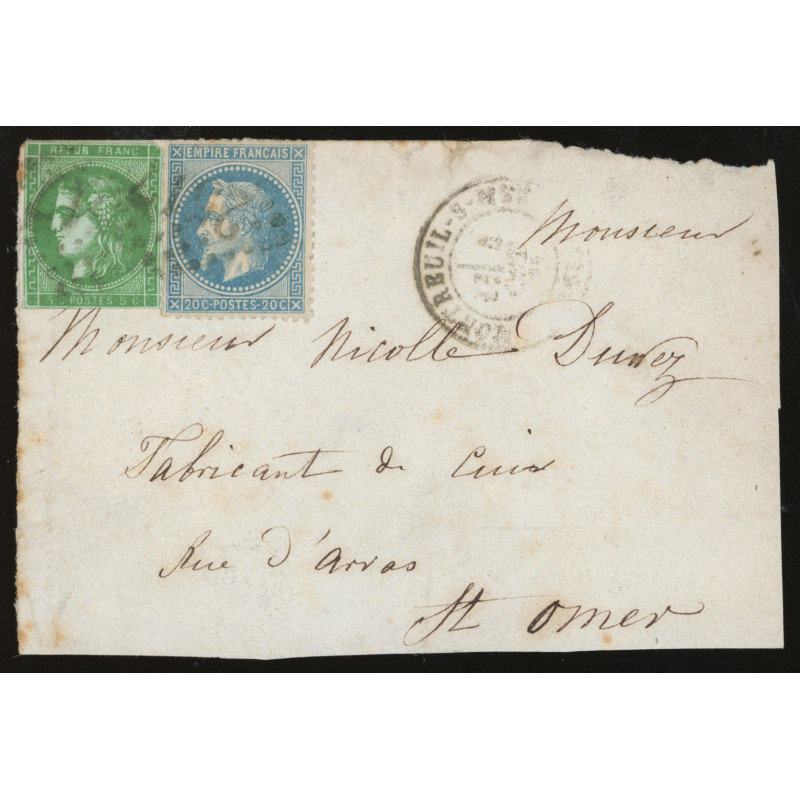 REPUB FRANC
5 POSTES 5 C
EMPIRE FRANÇAIS
20C-POSTES-20C
MONTREUIL-S-MER
Monsieur
Monsieur Nicolle Duvez
Fabricant de Cuir
Rue d'Arras
St Omer